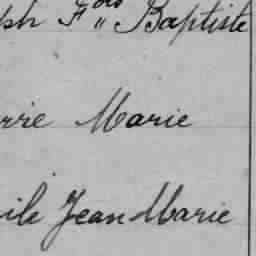 ph Fois Baptiste
rre Marie
ile Jean Marie